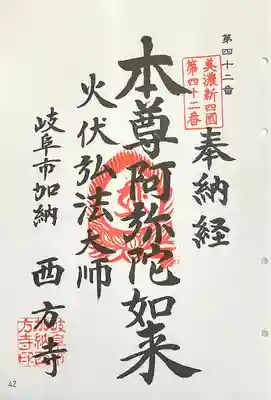 第四十二番
美濃新四國
第四十二番
奉納経
本尊阿弥陀如来
火伏弘法大師
岐阜市加納
西方寺
42